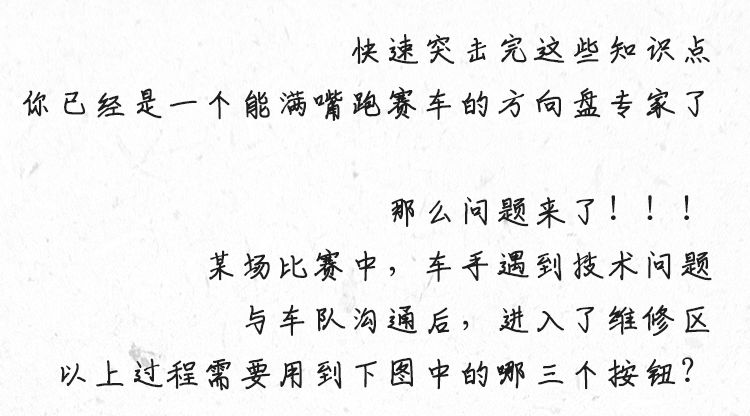 快速突击完这些知识点
你已经是一个能满嘴跑赛车的方向盘专家了
那么问题来了！！！
某场比赛中，车手遇到技术问题
与车队沟通后，进入了维修区
以上过程需要用到下图中的哪三个按钮？